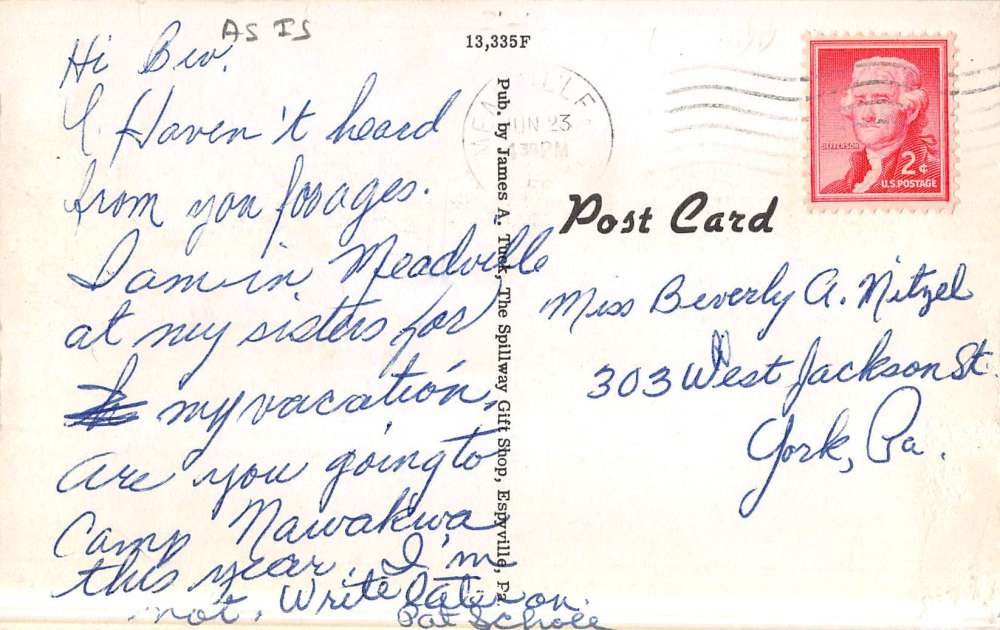 AS IS
13,335F
Hi Bev.
I Haven't heard
from you for ages.
I am in Meadville
at my sisters for
my vacation.
are you going to
Camp Nawakwa
this year. I'm
not. Write later on.
Pat Scholl
Pub. by James A. Tuck, The Spillway Gift Shop, Espyville, Pa.
MEADVILLE
JUN 23
PM
JEFFERSON
2¢
U.S. POSTAGE
Post Card
Miss Beverly A. Nitzel
303 West Jackson St.
York, Pa.